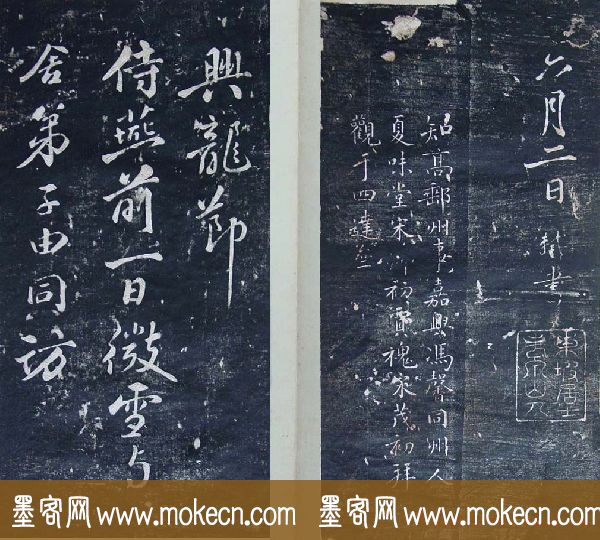 六月二日 軾書
東坡居
知高郵州事嘉興馮馨同州人
夏味堂宋初賈槐宋茂初拜
觀于四達
興龍節
侍燕前一日微雪与
舍弟子由同訪
墨客网 www.mokecn.com
墨客网 www.mokecn.com